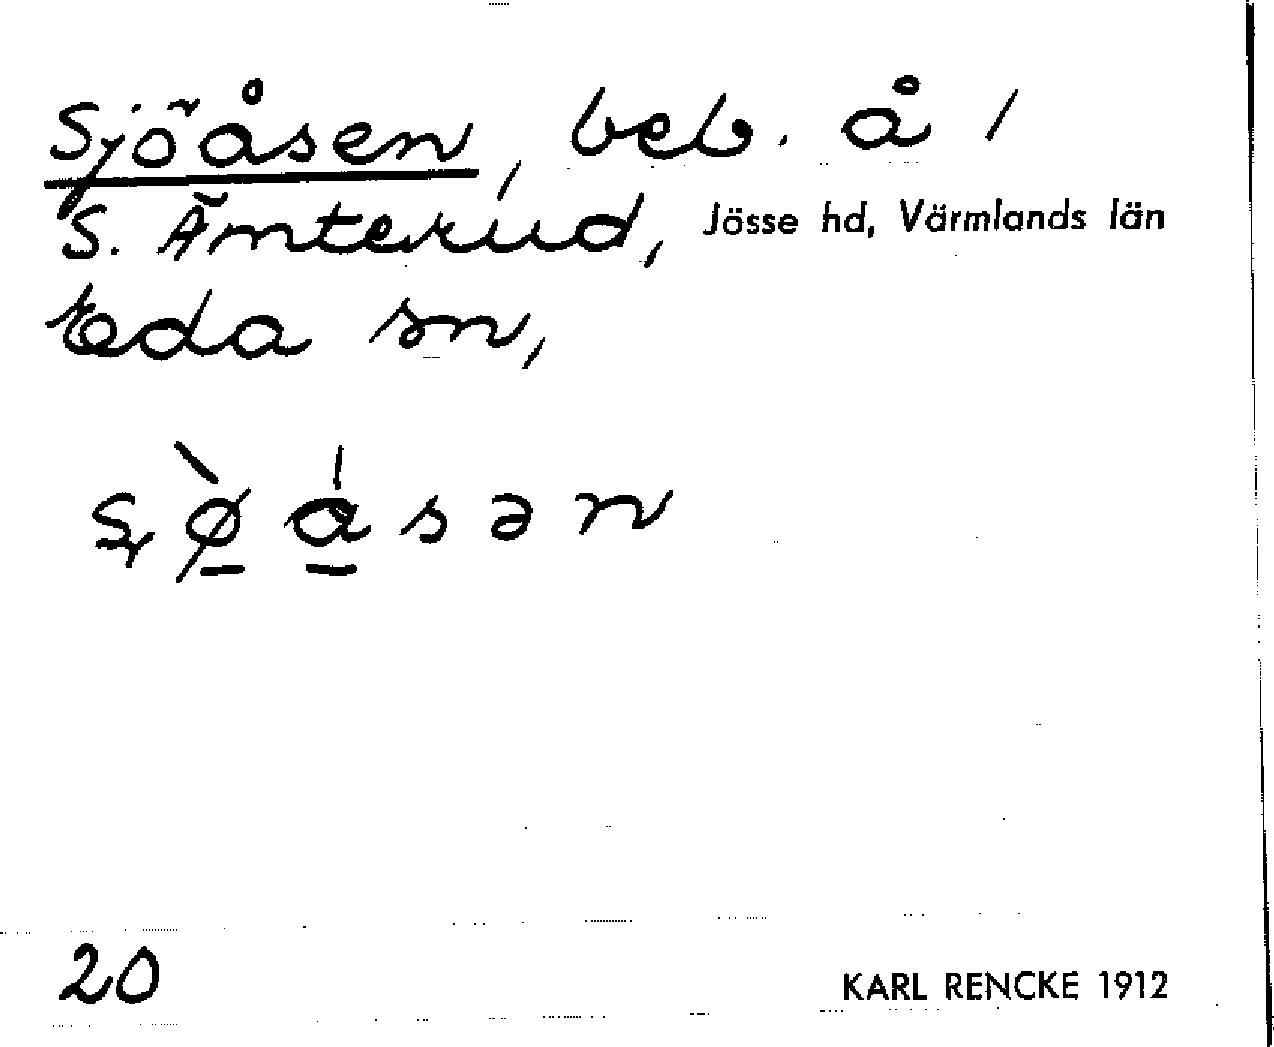 Sjöåsen, beb. å /
S. Ämterud, Jösse hd, Värmlands län
Eda sn,
20
KARL RENCKE 1912